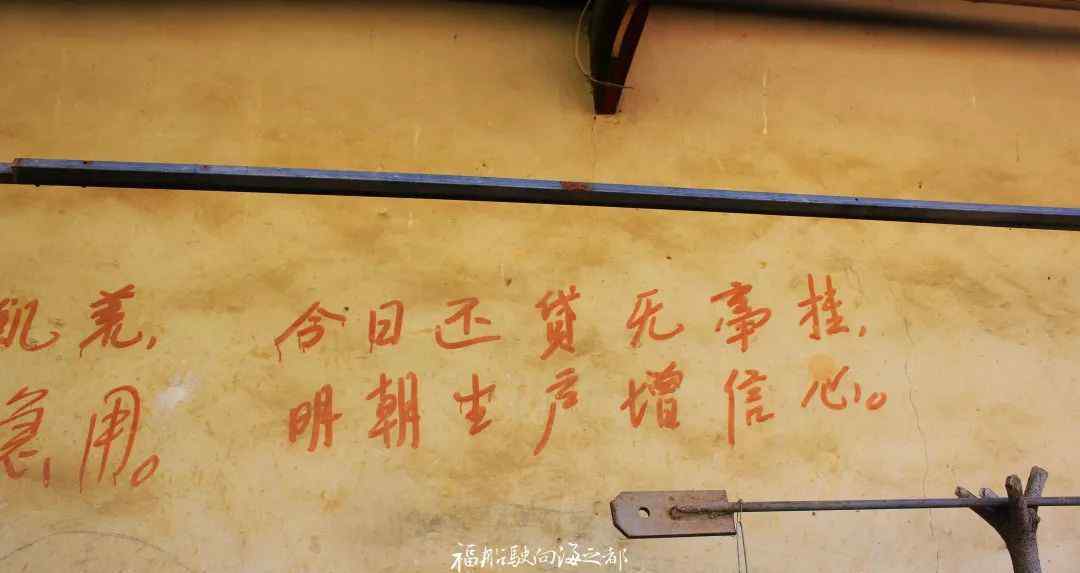 饥荒, 今日还贷无牵挂,
急用。 明朝生产增信心。
福船駛向海之都